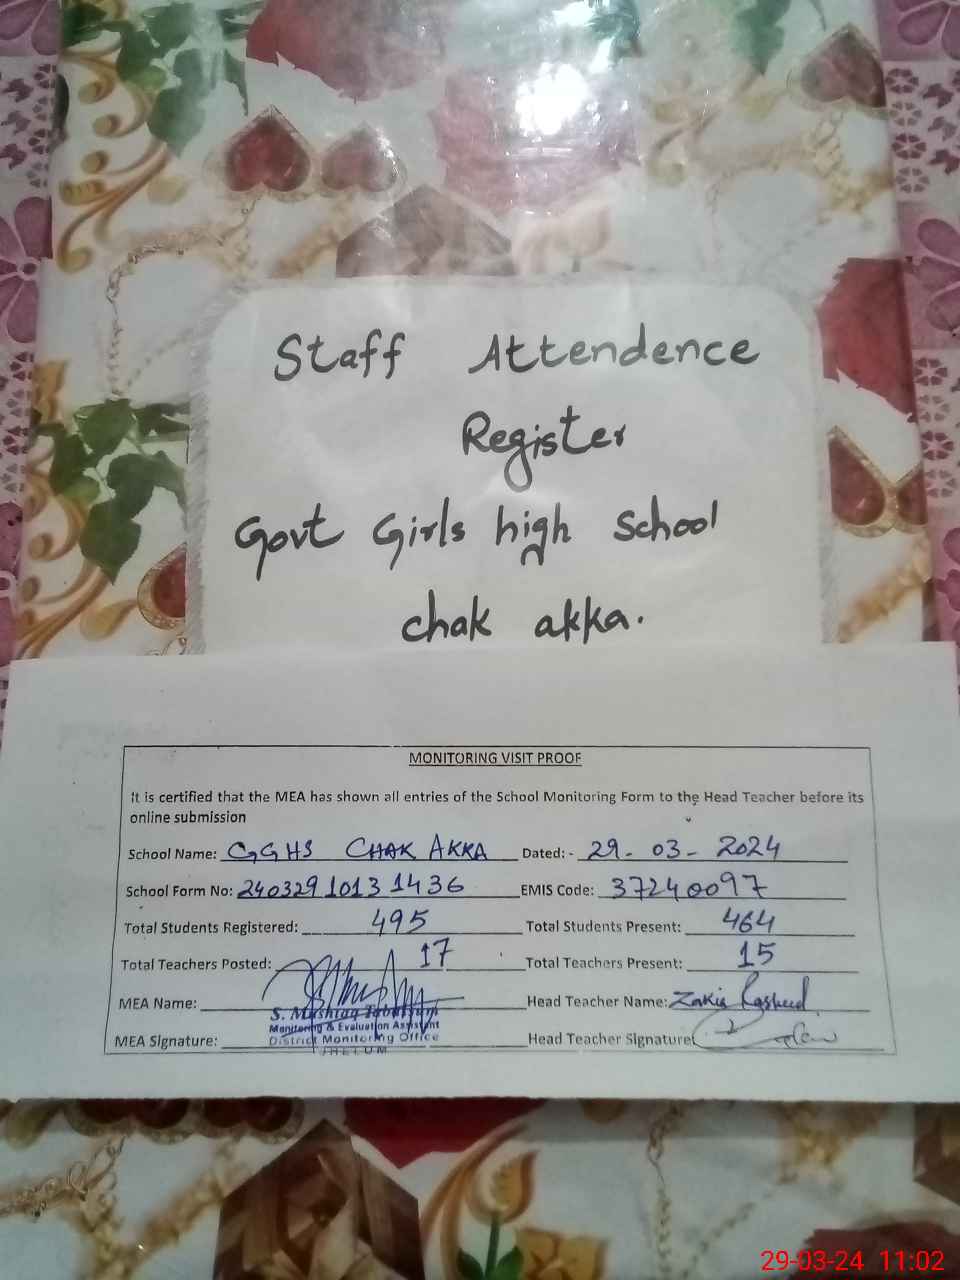 Staff Attendence
Register
Govt Girls high School
chak akka.
MONITORING VISIT PROOF
It is certified that the MEA has shown all entries of the School Monitoring Form to the Head Teacher before its
online submission
School Name: GGHS CHAK AKKA Dated:- 29-03-2024
School Form No: 24032910131436 EMIS Code: 37240097
Total Students Registered: 495 Total Students Present: 464
Total Teachers Posted: 17 Total Teachers Present: 15
MEA Name: Head Teacher Name: Zakia Rasheed
S. Mushtaq Tabassum
Monitoring & Evaluation Assistant
MEA Signature: District Monitoring Office Head Teacher Signature
JHELUM
29-03-24 11:02